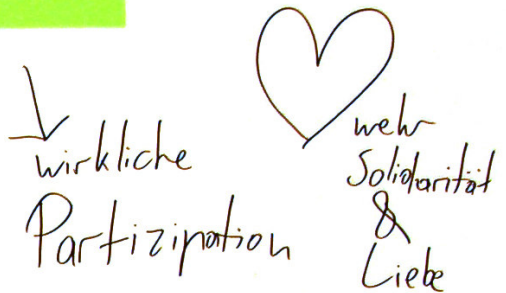 wirkliche
Partizipation
mehr
Solidarität
&
Liebe